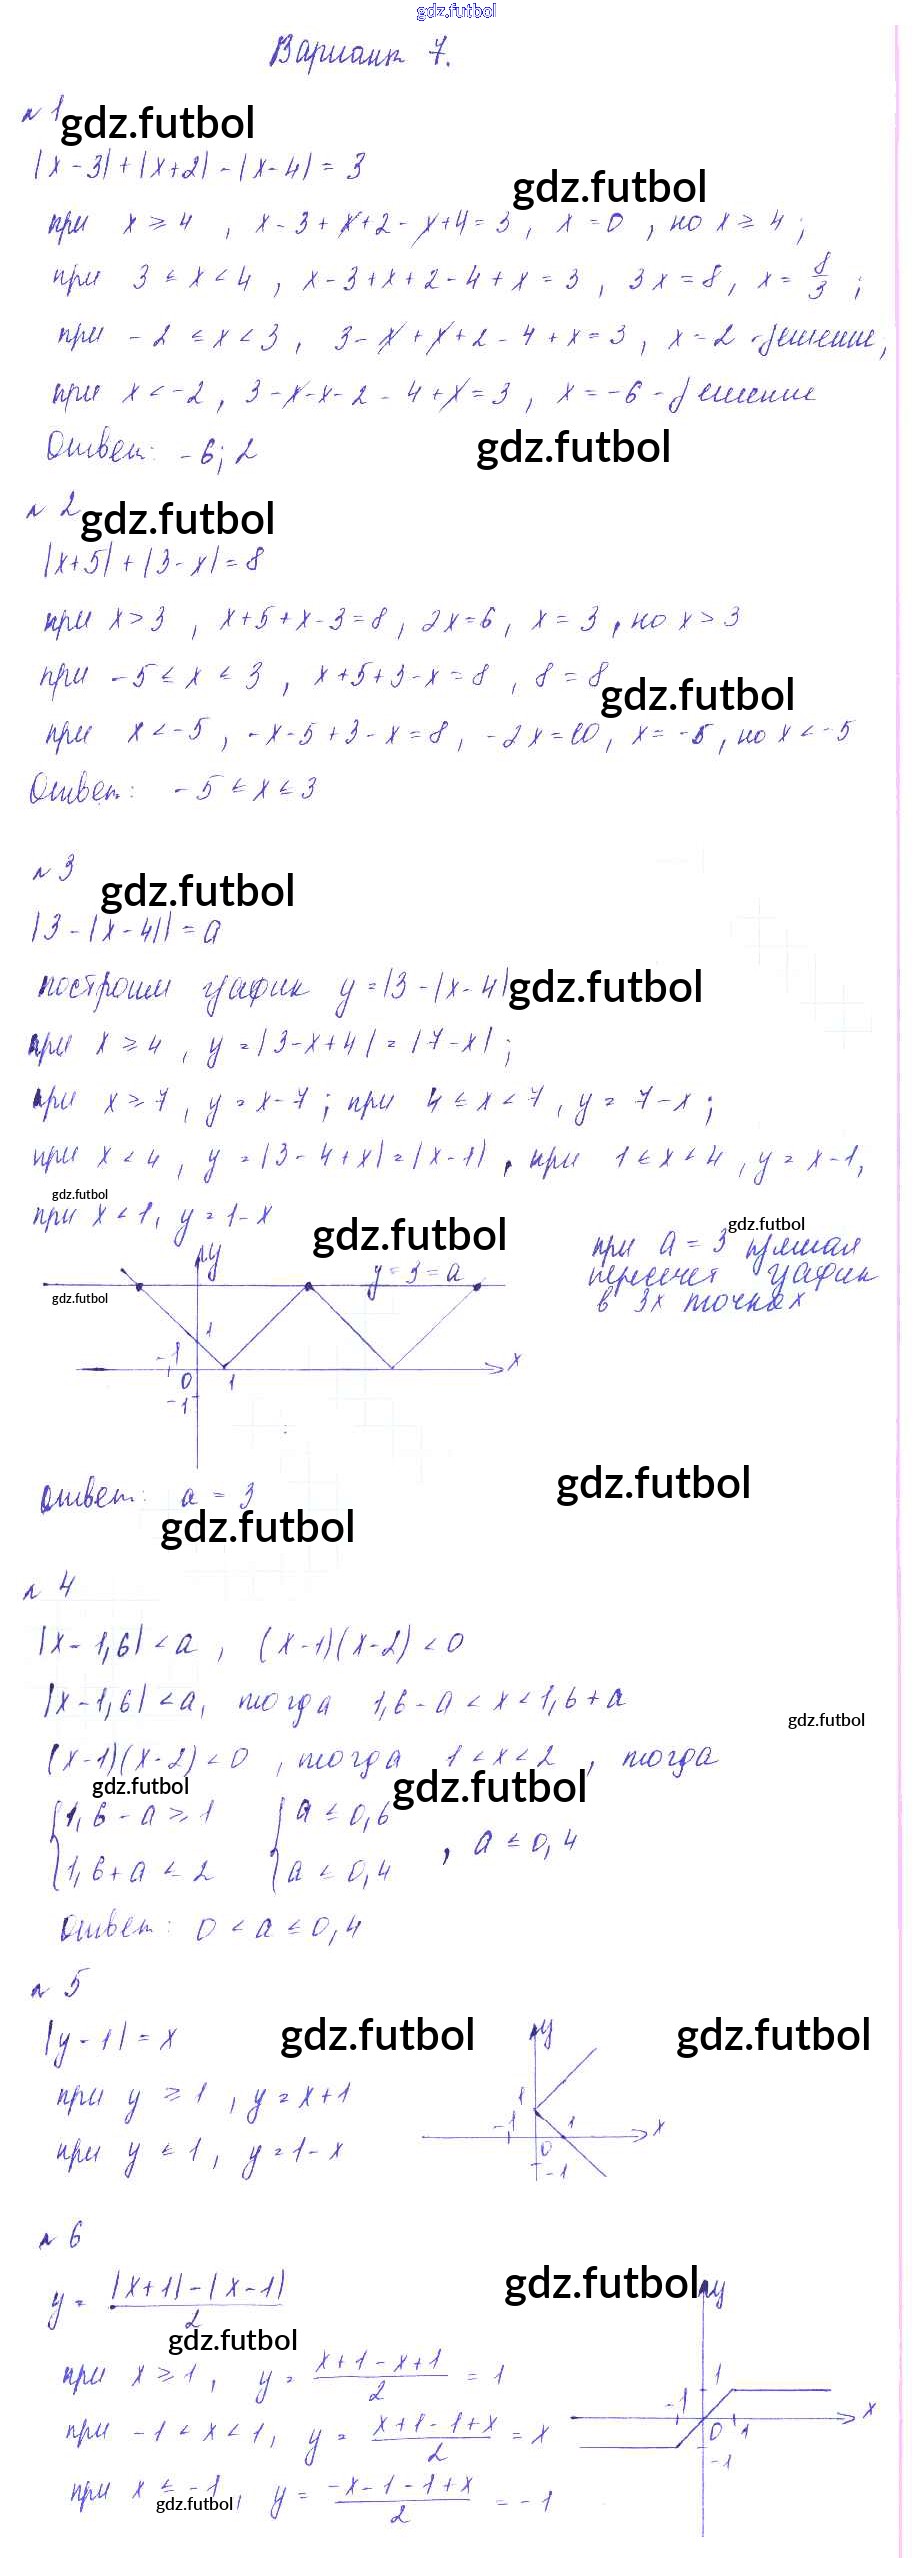 gdz.futbol
Вариант 7.
№ 1
gdz.futbol
|x-3|+|x+2|-|x-4|=3
gdz.futbol
при x ≥ 4 , x-3+x+2-x+4=3 , x=0 , но x ≥ 4 ;
при 3 ≤ x < 4 , x-3+x+2-4+x=3 , 3x=8 , x=8/3 ;
при -2 ≤ x < 3 , 3-x+x+2-4+x=3 , x=2 - решение ;
при x < -2 , 3-x-x-2-4+x=3 , x=-6 - решение
Ответ: -6; 2
gdz.futbol
№ 2
gdz.futbol
|x+5|+|3-x|=8
при x > 3 , x+5+x-3=8 , 2x=6 , x=3 , но x > 3
при -5 ≤ x ≤ 3 , x+5+3-x=8 , 8=8
gdz.futbol
при x < -5 , -x-5+3-x=8 , -2x=10 , x=-5 , но x < -5
Ответ: -5 ≤ x ≤ 3
№ 3
gdz.futbol
|3-|x-4||=a
построим график y=|3-|x-4|
gdz.futbol
при x ≥ 4 , y=|3-x+4|=|7-x| ;
при x ≥ 7 , y=x-7 ; при 4 ≤ x < 7 , y=7-x ;
при x < 4 , y=|3-4+x|=|x-1| , при 1 ≤ x < 4 , y=x-1 ,
gdz.futbol
при x < 1 , y=1-x
gdz.futbol
gdz.futbol
y
y=3=a
при a=3 прямая
пересечет график
в 3х точках
gdz.futbol
1
-1
0
1
x
-1
gdz.futbol
Ответ: a=3
gdz.futbol
№ 4
|x-1,6|<a , (x-1)(x-2)<0
|x-1,6|<a, тогда 1,6-a<x<1,6+a
gdz.futbol
(x-1)(x-2)<0 , тогда 1<x<2 , тогда
gdz.futbol
gdz.futbol
{1,6-a ≥ 1 {a ≤ 0,6
1,6+a ≤ 2 a ≤ 0,4 , a ≤ 0,4
Ответ: 0 < a ≤ 0,4
№ 5
|y-1|=x
gdz.futbol
y
gdz.futbol
при y ≥ 1 , y=x+1
при y ≤ 1 , y=1-x
1
-1
1
x
0
-1
№ 6
y=|x+1|-|x-1|/2
gdz.futbol
y
gdz.futbol
при x ≥ 1 , y=x+1-x+1/2=1
при -1 < x < 1 , y=x+1-1+x/2=x
при x ≤ -1 , y=-x-1-1+x/2=-1
gdz.futbol
1
-1
x
0
1
-1